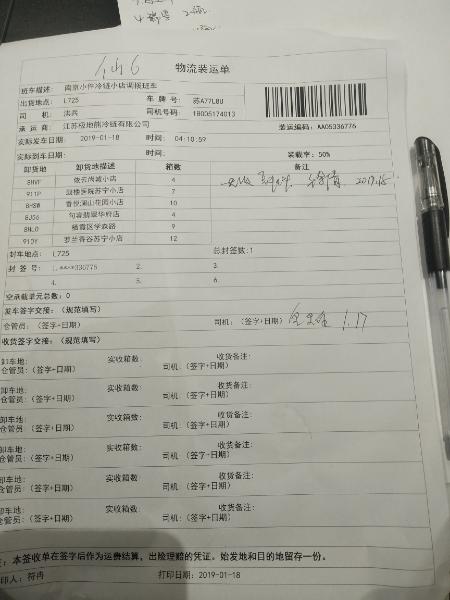 仙6
物流装运单
班车描述: 南京小件冷链小店调拨班车
出货地点: L725 车牌号: 苏A77L8U
司机: 法兵 司机号码: 18005174013
承运商: 江苏极地熊冷链有限公司 装运编码: AA05336776
实际发车日期: 2019-01-18 时间: 04:10:59
实际到车日期: 时间: 装载率: 50%
卸货地 卸货地描述 箱数 备注
8HVF 依云尚城小店 4
911P 鼓楼医院苏宁小店 7
8HSW 香悦澜山花园小店 10
8J56 句容翡翠华府店 4
8HL0 栖霞区学森路 9
91DY 罗兰香谷苏宁小店 12
封车地点: L725 总封签数:1
封签号: 1.****0336775 2. 3.
4. 5. 6.
空承载单元总数: 0
发车签字交接: (规范填写)
仓管员: (签字+日期) 司机: (签字+日期) 1.17
收货签字交接: (规范填写)
卸车地: 实收箱数: 收货备注:
仓管员: (签字+日期) 司机: (签字+日期)
卸车地: 实收箱数: 收货备注:
仓管员: (签字+日期) 司机: (签字+日期)
卸车地: 实收箱数: 收货备注:
仓管员: (签字+日期) 司机: (签字+日期)
卸车地: 实收箱数: 收货备注:
仓管员: (签字+日期) 司机: (签字+日期)
卸车地: 实收箱数: 收货备注:
仓管员: (签字+日期) 司机: (签字+日期)
卸车地: 实收箱数: 收货备注:
仓管员: (签字+日期) 司机: (签字+日期)
: 本签收单在签字后作为运费结算, 出险理赔的凭证。始发地和目的地留存一份。
印人: 符冉 打印日期: 2019-01-18